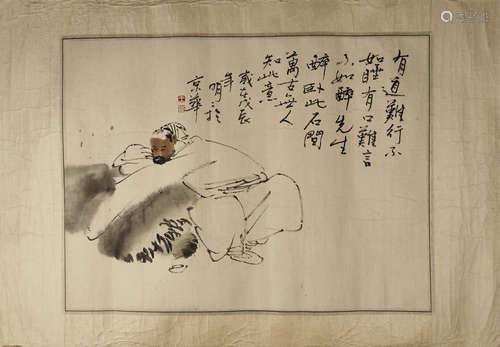 有道難行不
如睡有口難言
不如醉先生
醉卧此石間
萬古無人
知此意
歲在戊辰
年明於
京華